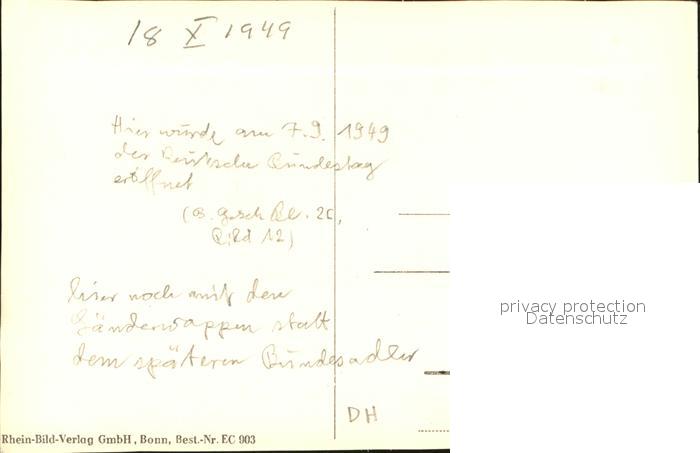 18 X 1949
Hier wurde am 7.9. 1949
der Deutsche Bundestag
eröffnet
(s. Gesch Bl. 20,
Bild 12)
hier noch mit den
Länderwappen statt
dem späteren Bundesadler
privacy protection
Datenschutz
DH
Rhein-Bild-Verlag GmbH, Bonn, Best.-Nr. EC 903